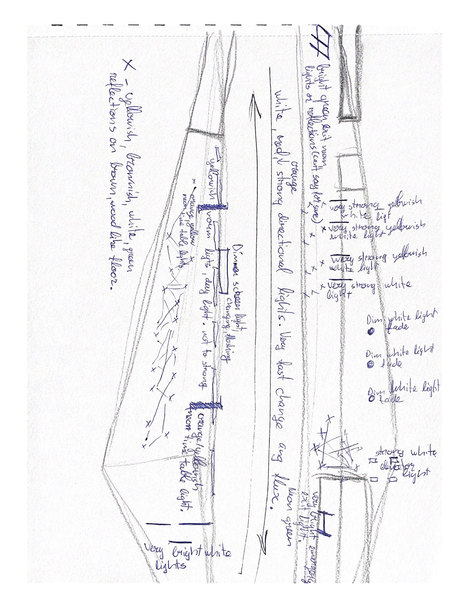 X - yellowish, brownish, white, green
reflections on brown, wood like floor.
bright green exit neon
lights or reflections (can't say for sure)
white, red, strong directional lights. Very fast change and flux.
orange
neon green
very strong yellowish
white light
very strong yellowish
white light
very strong yellowish
white light
very strong white
light
Dim white light
fade
Dim white light
fade
Dim white light
fade
strong white
light
very bright emergency
exit light.
Dimmer screen light,
changing, flashing
yellowish room light, day light. not so strong
orange yellow
table lights
orange/yellowish
table light.
very bright white
lights